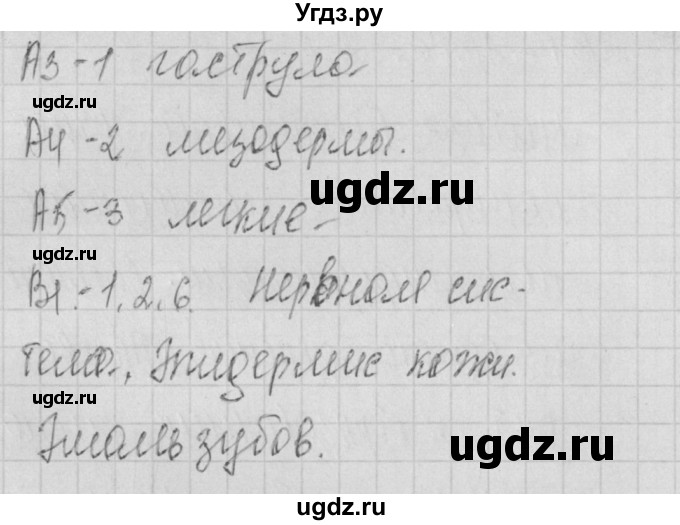 Угдз.ру
А3-1 гаструла
ugdz.ru
А4-2 мезодермы.
ugdz.ru
А5-3 легкие
ugdz.ru
В1.-1,2,6. Нервная сис-
ugdz.ru
тема, Эпидермис кожи.
Эмаль зубов.
ugdz.ru
ugdz.ru